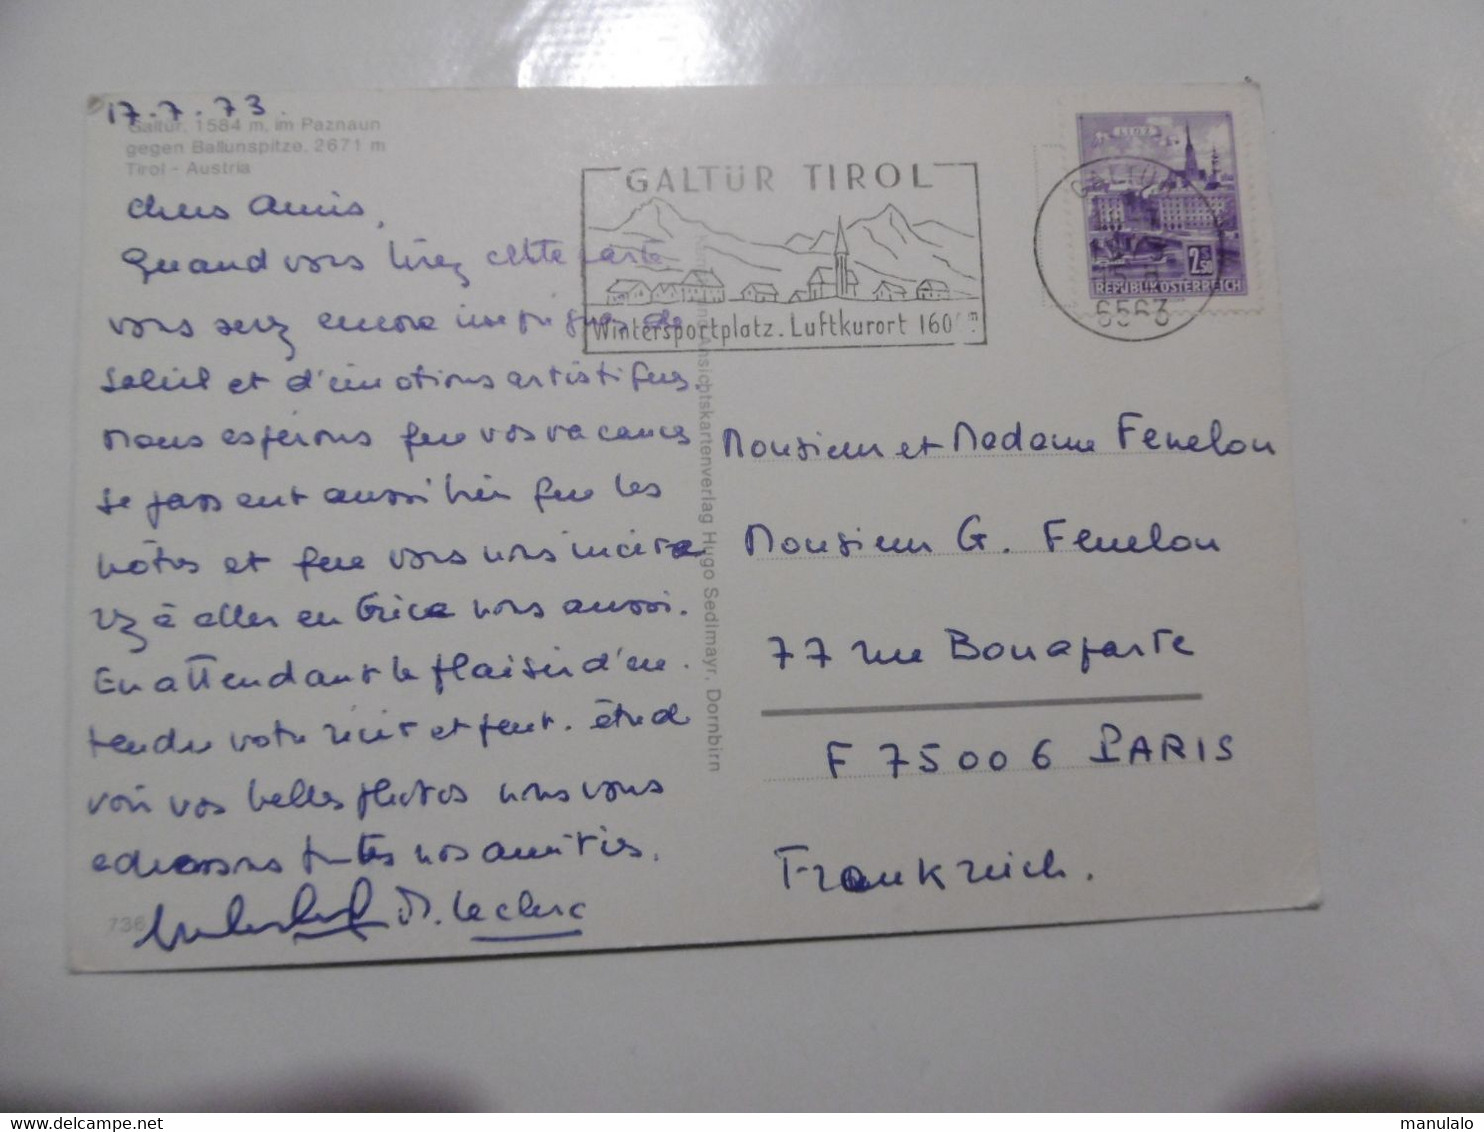 17.7.73.
Galtür, 1584 m, im Paznaun
gegen Ballunspitze, 2671 m
Tirol - Austria
Chers Amis,
Quand vous lirez cette carte
vous serez encore imprégnés de
soleil et d'émotions artistiques.
Nous espérons que vos vacances
se passent aussi bien que les
nôtres et que vous nous incitere
rez à aller en Grèce nous aussi.
En attendant le plaisir d'en-
tendre votre récit et peut-être de
voir vos belles photos nous vous
adressons toutes nos amitiés.
M. Leclerc
736
GALTÜR TIROL
Wintersportplatz. Luftkurort 160
GALTÜR
6563
LINZ
2.50
REPUBLIK ÖSTERREICH
Ansichtskartenverlag Hugo Sedlmayr, Dornbirn
Monsieur et Madame Fenelon
Monsieur G. Fenelon
77 rue Bonaparte
F 75006 PARIS
Frankreich.
www.delcampe.net
manulalo